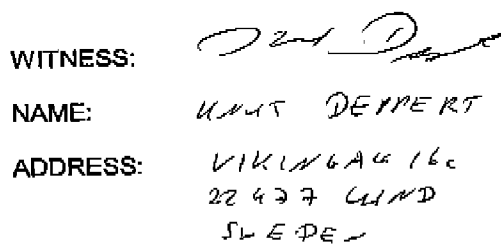 WITNESS:
NAME: KNUT DEPPERT
ADDRESS: VIKINGAG 16c
22477 LUND
SWEDEN